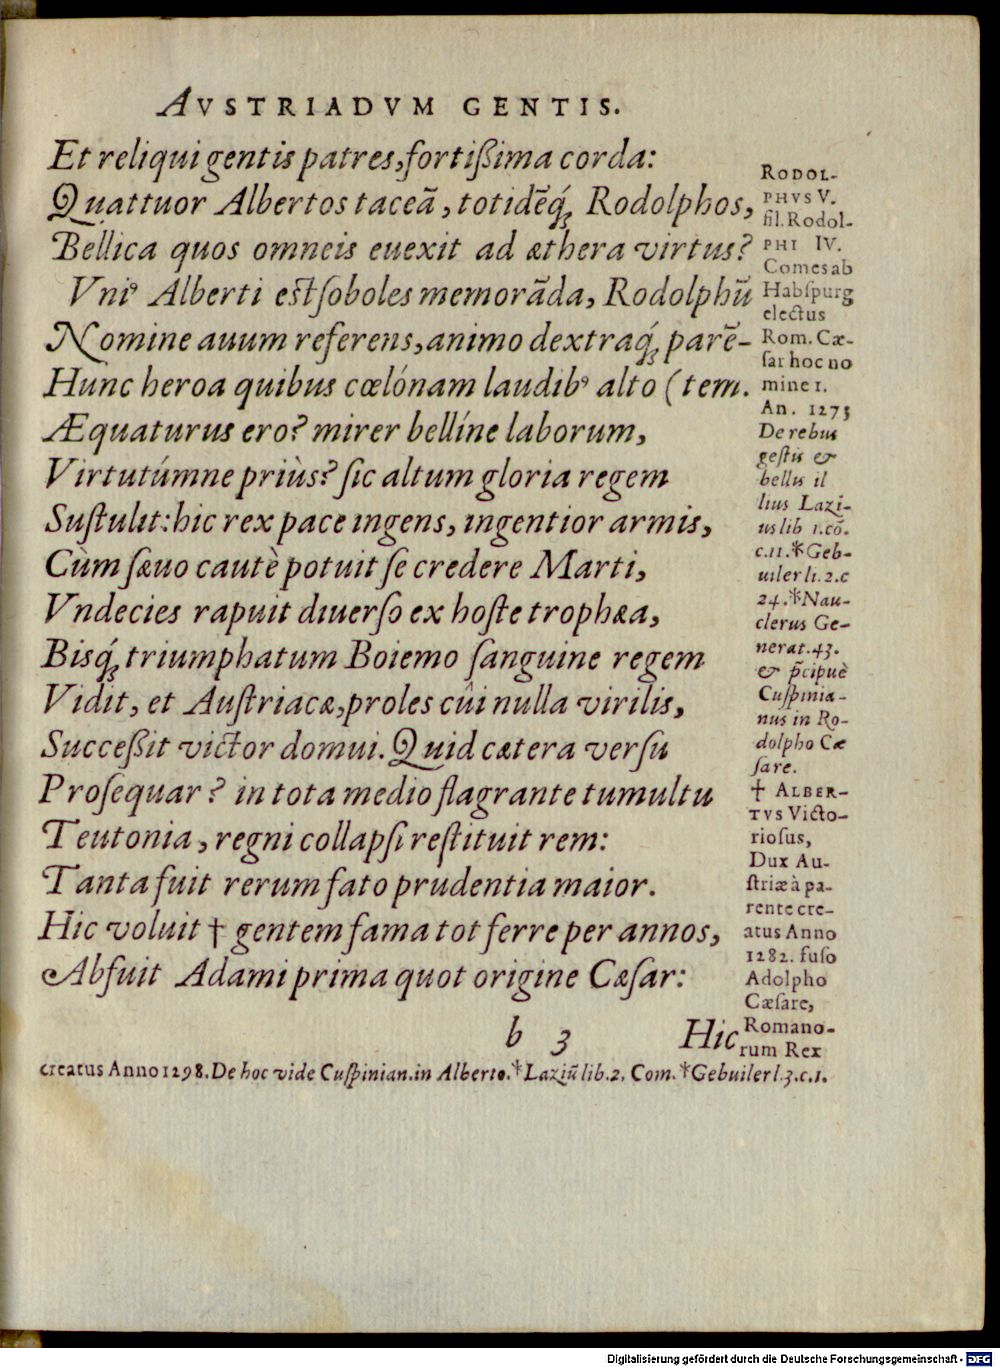 AVSTRIADVM GENTIS.
Et reliqui gentis patres, fortißima corda:
Quattuor Albertos taceã, totidẽq́ꝫ Rodolphos,
Bellica quos omneis euexit ad æthera virtus?
Vniꝰ Alberti est ſoboles memorãda, Rodolphũ
Nomine auum referens, animo dextraq́ꝫ parẽ-
Hunc heroa quibus cœlónam laudibꝰ alto (tem.
Æquaturus ero? mirer bellíne laborum,
Virtutúmne priùs? ſic altum gloria regem
Suſtulit: hic rex pace ingens, ingentior armis,
Cùm ſæuo cautè potuit ſe credere Marti,
Vndecies rapuit diuerſo ex hoſte trophæa,
Bisq́ꝫ triumphatum Boiemo ſanguine regem
Vidit, et Auſtriacæ, proles cûi nulla virilis,
Succeßit victor domui. Quid cætera verſu
Proſequar? in tota medio flagrante tumultu
Teutonia, regni collapſi reſtituit rem:
Tanta fuit rerum fato prudentia maior.
Hic voluit † gentem fama tot ferre per annos,
Abfuit Adami prima quot origine Cæſar:
b 3 Hic
RODOL-
PHVS V.
fil. Rodol-
PHI IV.
Comes ab
Habſpurg
electus
Rom. Cæ-
ſar hoc no
mine 1.
An. 1273
De rebus
geſtis &
bellis il
lius Lazi-
us lib 1. cõ.
c. 11. *Geb-
uiler li. 2. c
24. *Nau-
clerus Ge-
nerat. 43.
& p̃cipuè
Cuſpinia-
nus in Ro-
dolpho Cæ
ſare.
† ALBER-
TVS Victo-
rioſus,
Dux Au-
ſtriæ à pa-
rente cre-
atus Anno
1282. fuſo
Adolpho
Cæſare,
Romano-
rum Rex
creatus Anno 1298. De hoc vide Cuſpinian. in Alberto. *Laziũ lib. 2. Com. *Gebuiler l. 3. c. 1.
Digitalisierung gefördert durch die Deutsche Forschungsgemeinschaft - DFG